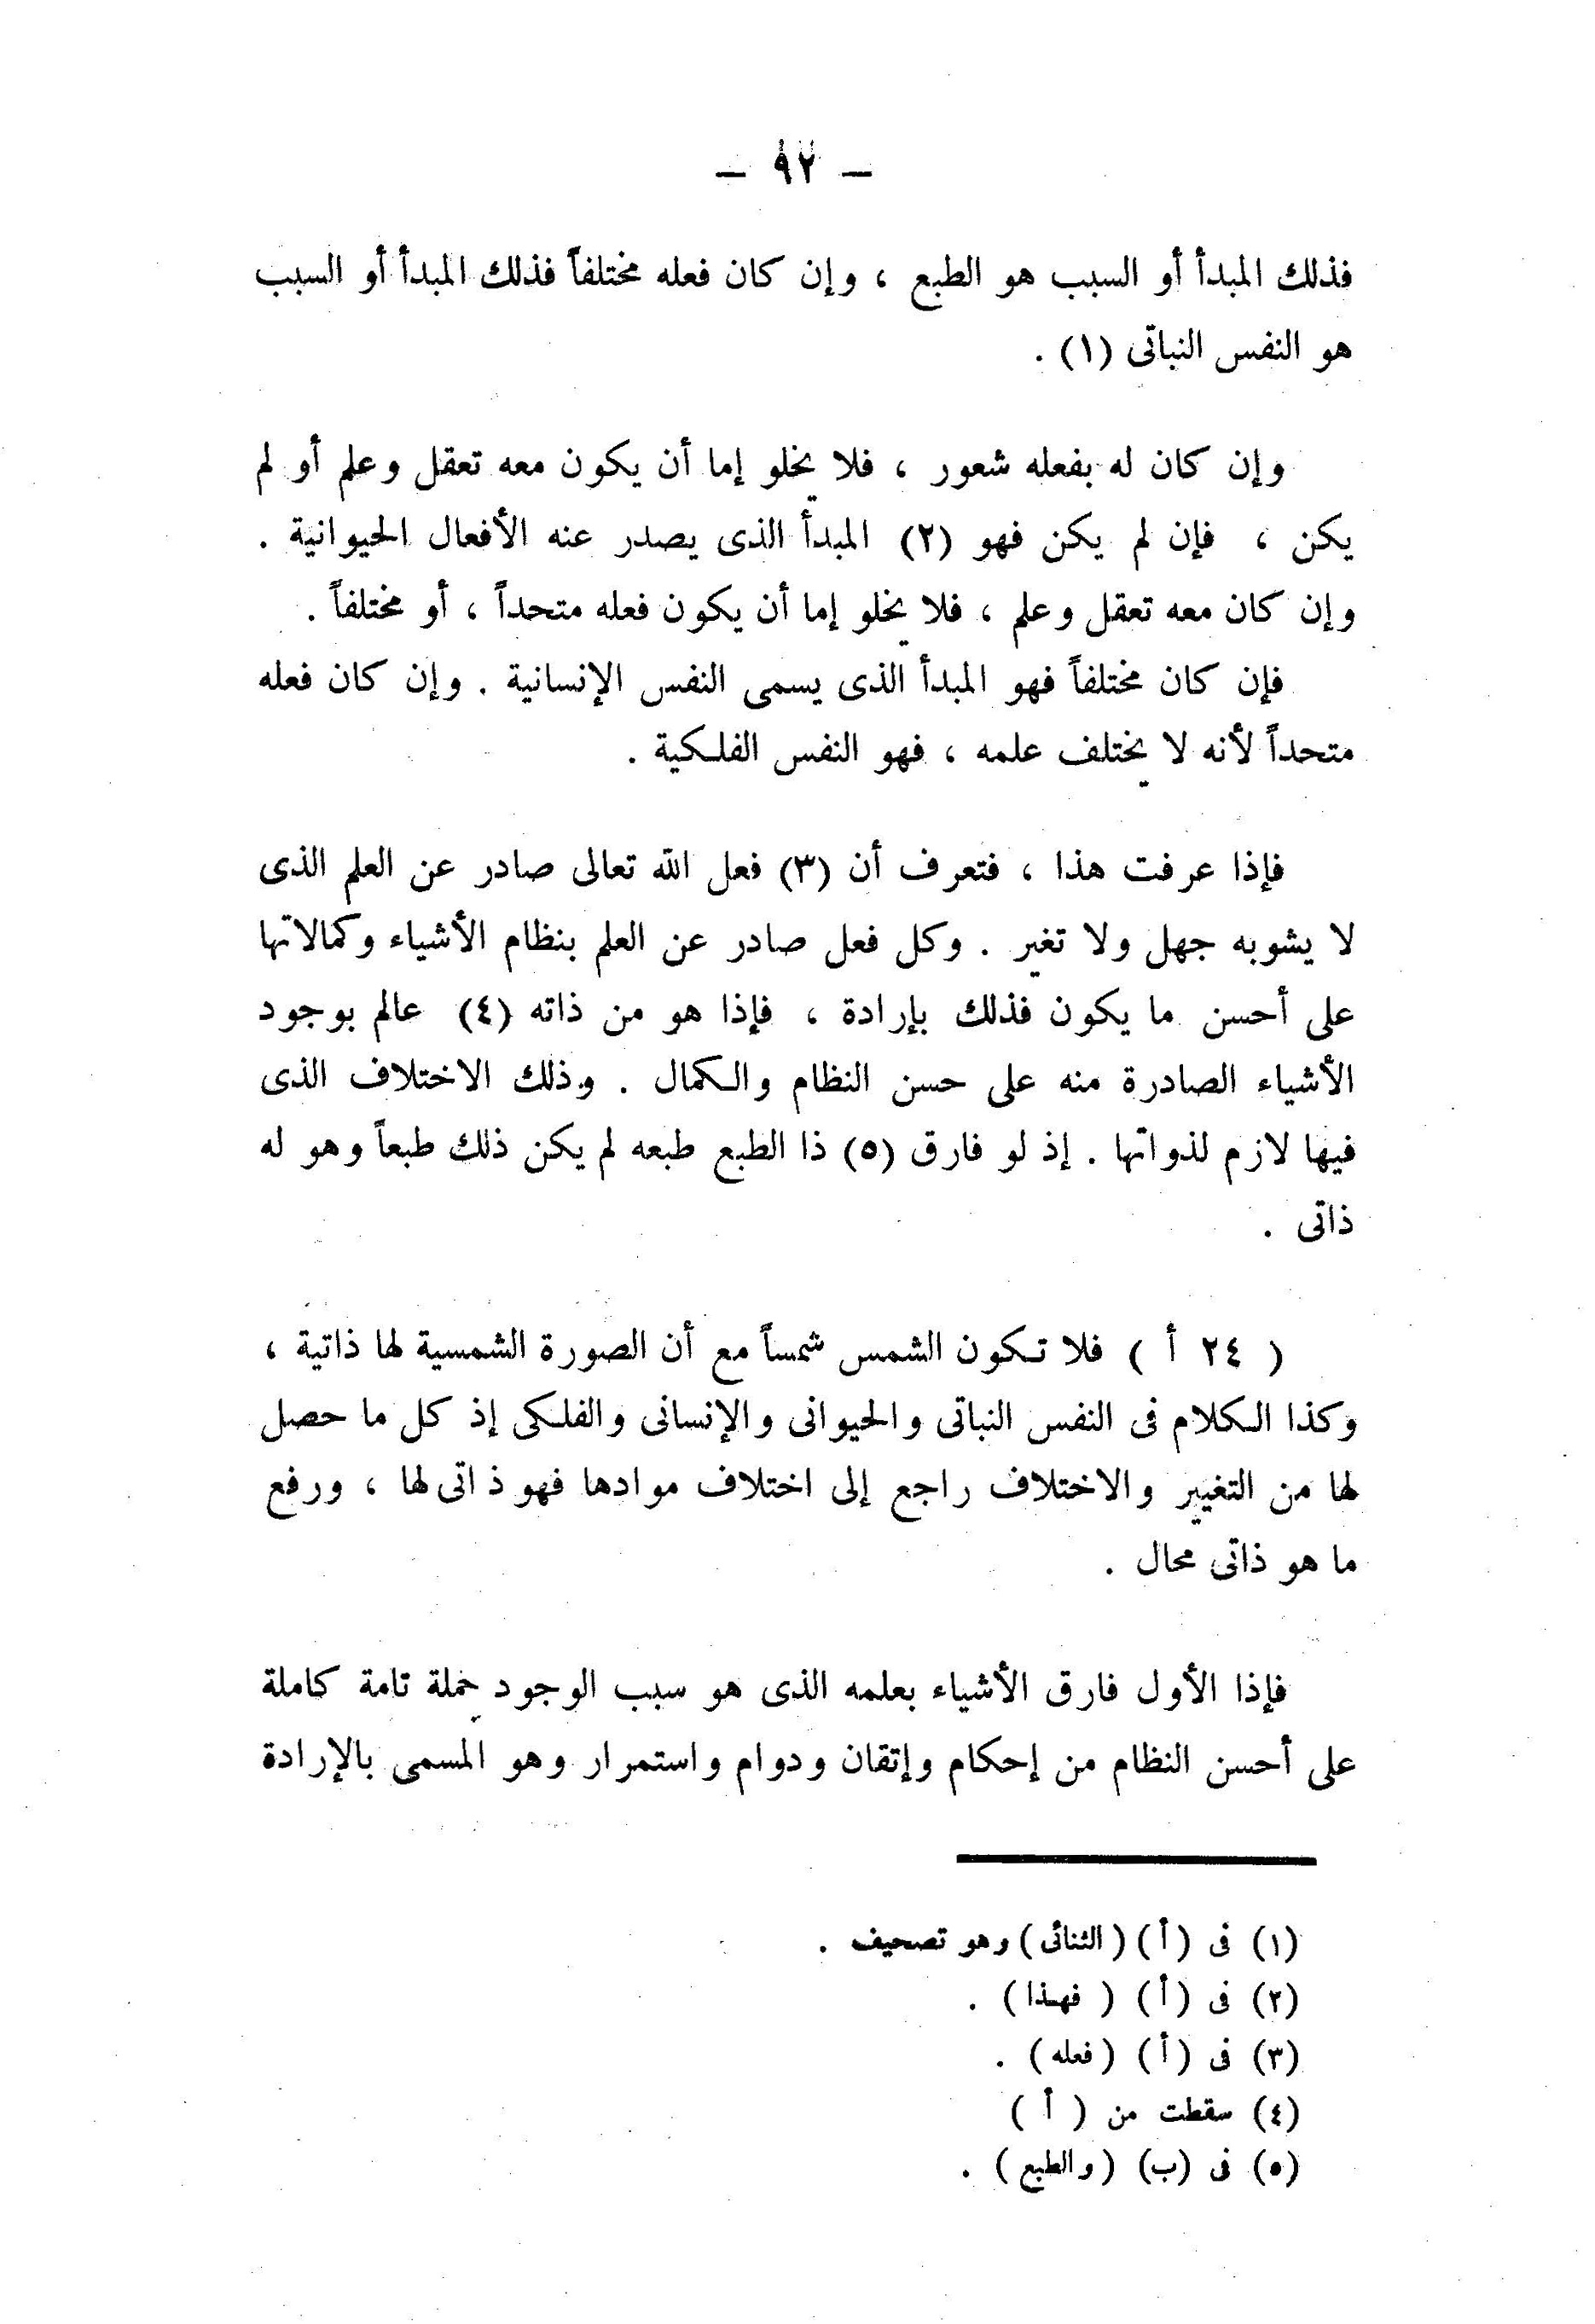 — ٩٢ —
فذلك المبدأ أو السبب هو الطبع ، وإن كان فعله مختلفاً فذلك المبدأ أو السبب
هو النفس النباتى (١) .
وإن كان له بفعله شعور ، فلا يخلو إما أن يكون معه تعقل وعلم أو لم
يكن ، فإن لم يكن فهو (٢) المبدأ الذى يصدر عنه الأفعال الحيوانية .
وإن كان معه تعقل وعلم ، فلا يخلو إما أن يكون فعله متحداً ، أو مختلفاً .
فإن كان مختلفاً فهو المبدأ الذى يسمى النفس الإنسانية . وإن كان فعله
متحداً لأنه لا يختلف علمه ، فهو النفس الفلكية .
فإذا عرفت هذا ، فتعرف أن (٣) فعل الله تعالى صادر عن العلم الذى
لا يشوبه جهل ولا تغير . وكل فعل صادر عن العلم بنظام الأشياء وكمالاتها
على أحسن ما يكون فذلك بإرادة ، فإذا هو من ذاته (٤) عالم بوجود
الأشياء الصادرة منه على حسن النظام والكمال . وذلك الاختلاف الذى
فيها لازم لذواتها . إذ لو فارق (٥) ذا الطبع طبعه لم يكن ذلك طبعاً وهو له
ذاتى .
( ٢٤ أ ) فلا تكون الشمس شمساً مع أن الصورة الشمسية لها ذاتية ،
وكذا الكلام فى النفس النباتى والحيوانى والإنسانى والفلكى إذ كل ما حصل
لها من التغيير والاختلاف راجع إلى اختلاف موادها فهو ذاتى لها ، ورفع
ما هو ذاتى محال .
فإذا الأول فارق الأشياء بعلمه الذى هو سبب الوجود جملة تامة كاملة
على أحسن النظام من إحكام وإتقان ودوام واستمرار وهو المسمى بالإرادة
(١) فى (أ) (الثنائى) وهو تصحيف .
(٢) فى (أ) (فهذا) .
(٣) فى (أ) (فعله) .
(٤) سقطت من (أ)
(٥) فى (ب) (والطبع) .